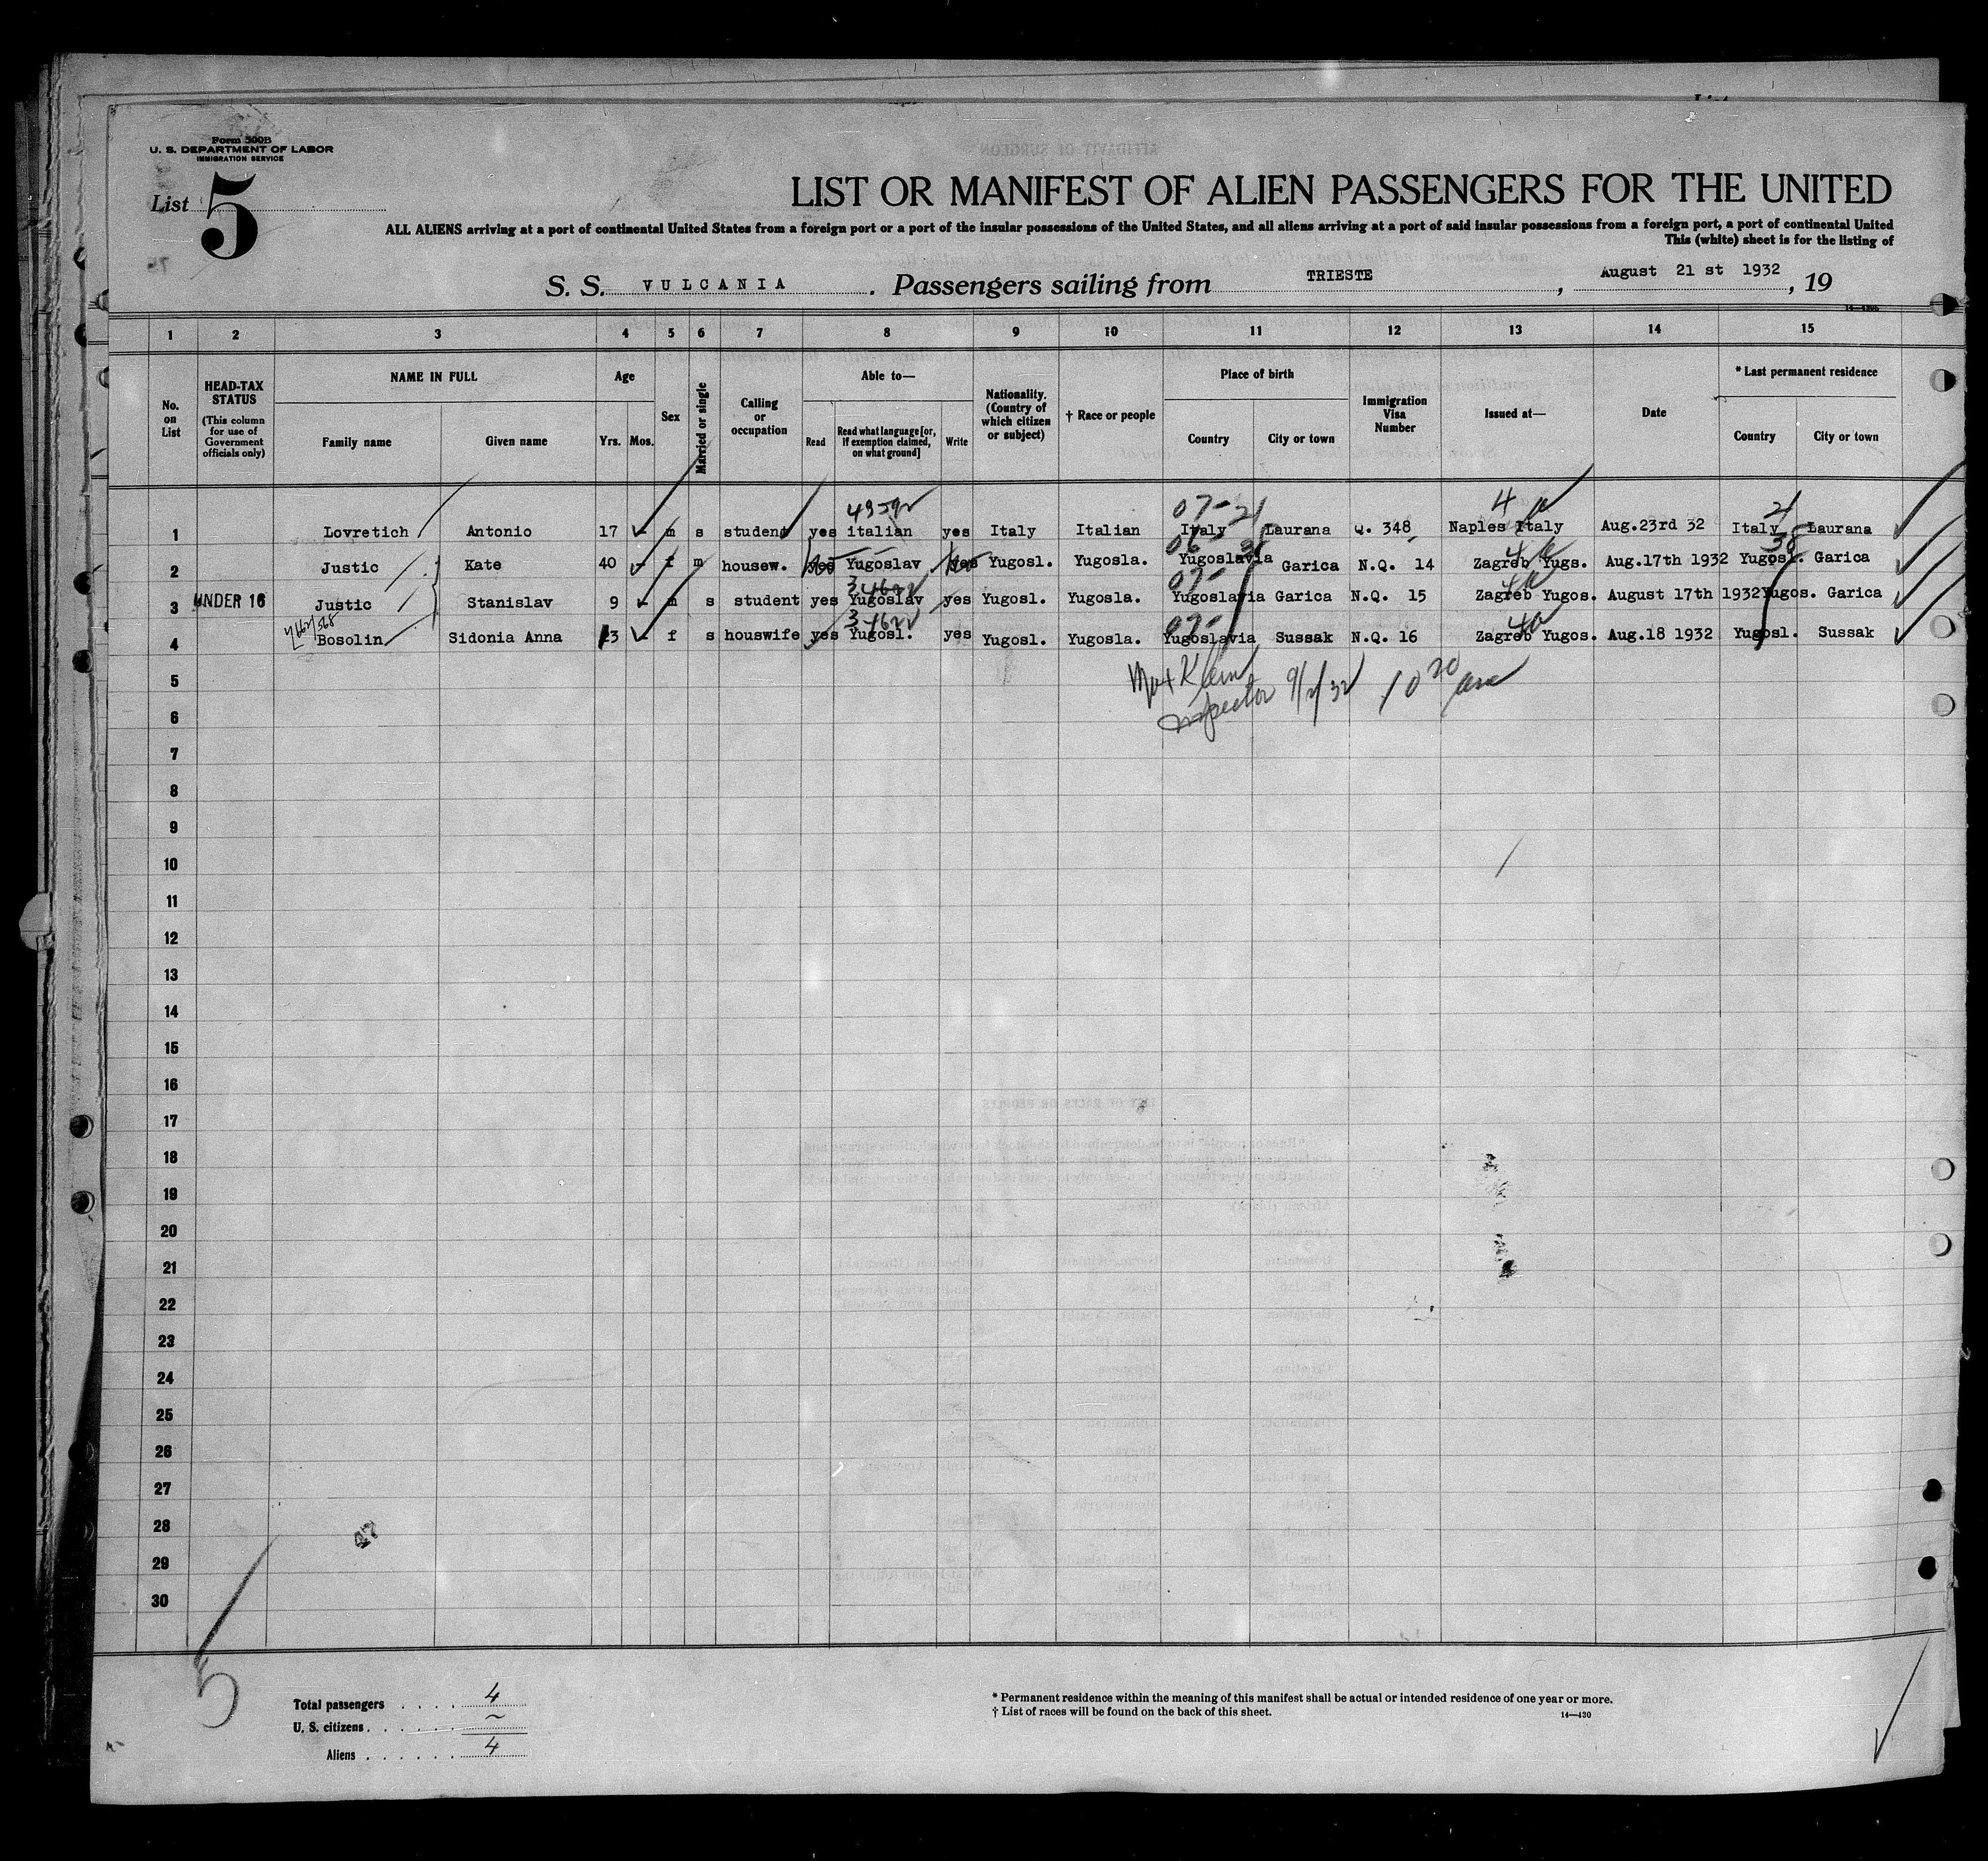 Form 500B
U. S. DEPARTMENT OF LABOR
IMMIGRATION SERVICE
List 5
LIST OR MANIFEST OF ALIEN PASSENGERS FOR THE UNITED
ALL ALIENS arriving at a port of continental United States from a foreign port or a port of the insular possessions of the United States, and all aliens arriving at a port of said insular possessions from a foreign port, a port of continental United
This (white) sheet is for the listing of
S. S. VULCANIA. Passengers sailing from TRIESTE, August 21 st 1932, 19
14—430b
1 2 3 4 5 6 7 8 9 10 11 12 13 14 15
No. on List
HEAD-TAX STATUS (This column for use of Government officials only)
NAME IN FULL
Family name
Given name
Age
Yrs. Mos.
Sex
Married or single
Calling or occupation
Able to—
Read
Read what language [or, if exemption claimed, on what ground]
Write
Nationality. (Country of which citizen or subject)
† Race or people
Place of birth
Country
City or town
Immigration Visa Number
Issued at—
Date
* Last permanent residence
Country
City or town
07-21 4 21
1 Lovretich Antonio 17 - m s student yes italian yes Italy Italian Italy Laurana Q. 348 Naples Italy Aug.23rd 32 Italy Laurana
2 Justic Kate 40 - f m housew. yes Yugoslav yes Yugosl. Yugosla. Yugoslavia Garica N.Q. 14 Zagreb Yugs. Aug.17th 1932 Yugosl. Garica
3 UNDER 16 Justic Stanislav 9 - m s student yes Yugoslav yes Yugosl. Yugosla. Yugoslavia Garica N.Q. 15 Zagreb Yugos. August 17th 1932 Yugos. Garica
4 Bosolin Sidonia Anna 13 - f s houswife yes Yugosl. yes Yugosl. Yugosla. Yugoslavia Sussak N.Q. 16 Zagreb Yugos. Aug.18 1932 Yugosl. Sussak
5 Max Klein
6 Inspector 9/2/32 10 20 am
7
8
9
10
11
12
13
14
15
16
17
18
19
20
21
22
23
24
25
26
27
28 47
29
30
5
Total passengers . . . . 4
U. S. citizens . . . . . . ~
Aliens . . . . . . 4
* Permanent residence within the meaning of this manifest shall be actual or intended residence of one year or more.
† List of races will be found on the back of this sheet.
14—430